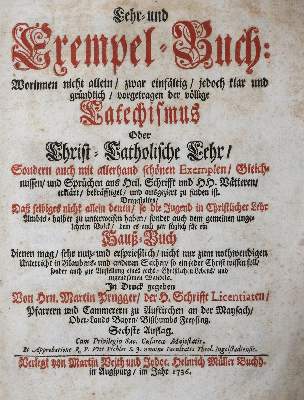 Lehr- und
Exempel-Buch:
Worinnen nicht allein / zwar einfältig / jedoch klar und
gründlich / vorgetragen der völlige
Catechismus
Oder
Christ-Catholische Lehr /
Sondern auch mit allerhand schönen Exemplen / Gleich-
nussen / und Sprüchen aus Heil. Schrifft und HH. Vättern /
erklärt / bekräfftiget / und ausgeziert zu finden ist.
Dergestalten /
Daß selbiges nicht allein denen / so die Jugend in Christlicher Lehr
Ambts-halber zu unterweisen haben / sonder auch dem gemeinen unge-
lehrten Volck /
Hauß-Buch
dienen mag / sehr nutz- und ersprießlich / nicht nur zum nothwendigen
Unterricht in Glaubens- und anderen Sachen / so ein jeder Christ wissen soll /
sonder auch zur Anstellung eines recht-Christlichen Lebens und
Wandels.
In Druck gegeben
Von Hrn. Martin Prugger / der H. Schrifft Licentiaten /
Pfarrern und Cammerern zu Aufkirchen an der Maysach /
Ober-Lands Bayrn / Bisthumbs Freysing.
Sechste Auflag.
Cum Privilegio Sac. Cæsareæ Majestatis,
Et Approbatione R. P. Viti Pichler S. J. Theol. Ingolstadiensis.
Verlegt von Martin Veith und Ignac. Heinrich Müller Buchh.
in Augspurg / im Jahr 1736.